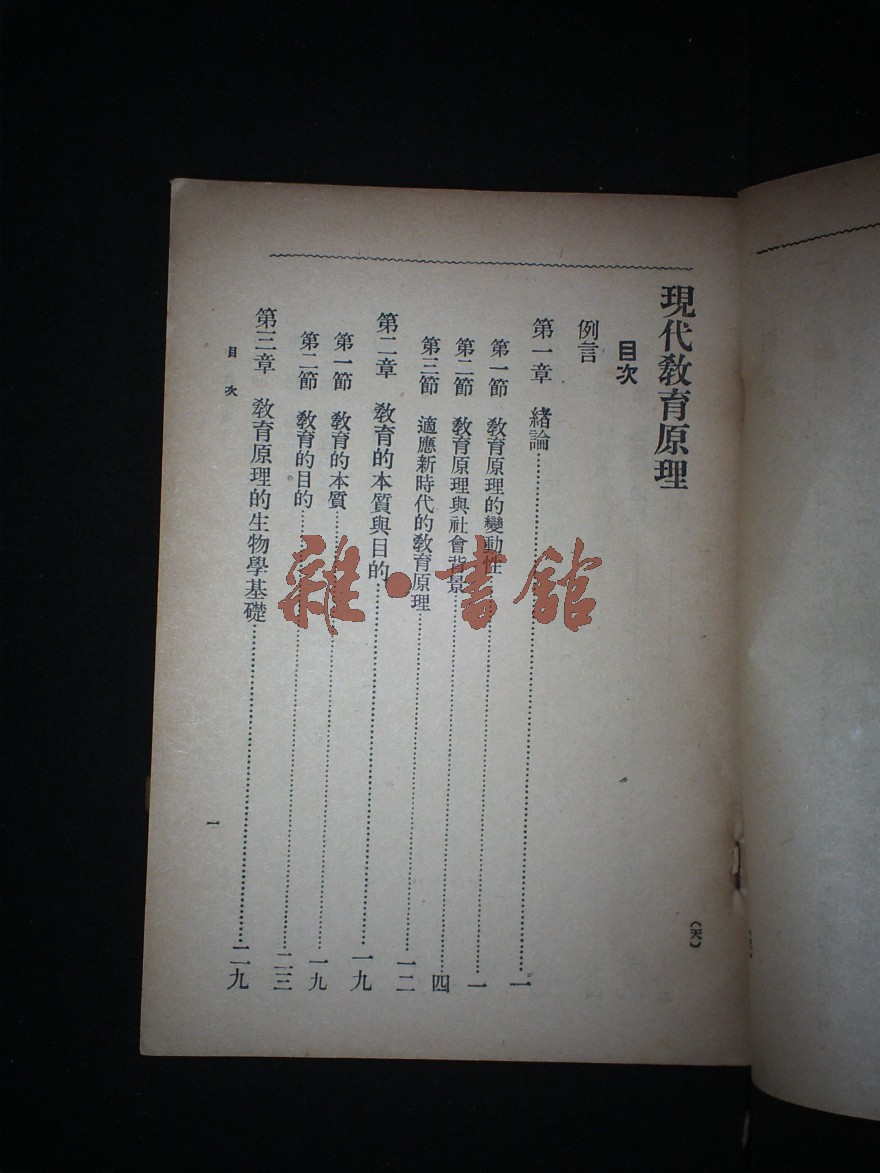 現代教育原理
目次
例言
第一章 緒論……一
第一節 教育原理的變動性……一
第二節 教育原理與社會背景……四
第三節 適應新時代的教育原理……一二
第二章 教育的本質與目的……一九
第一節 教育的本質……一九
第二節 教育的目的……二三
第三章 教育原理的生物學基礎……二九
目次
一
(天)
雜·書館